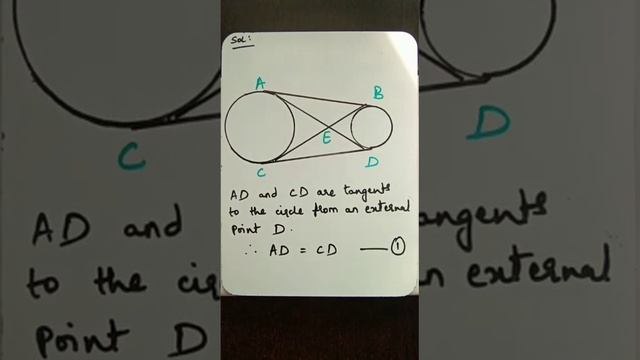 Sol:
A
B
E
C
D
AD and CD are tangents
to the circle from an external
point D.
∴ AD = CD —— ①
C
D
AD and
angents
to the cir
n external
point D